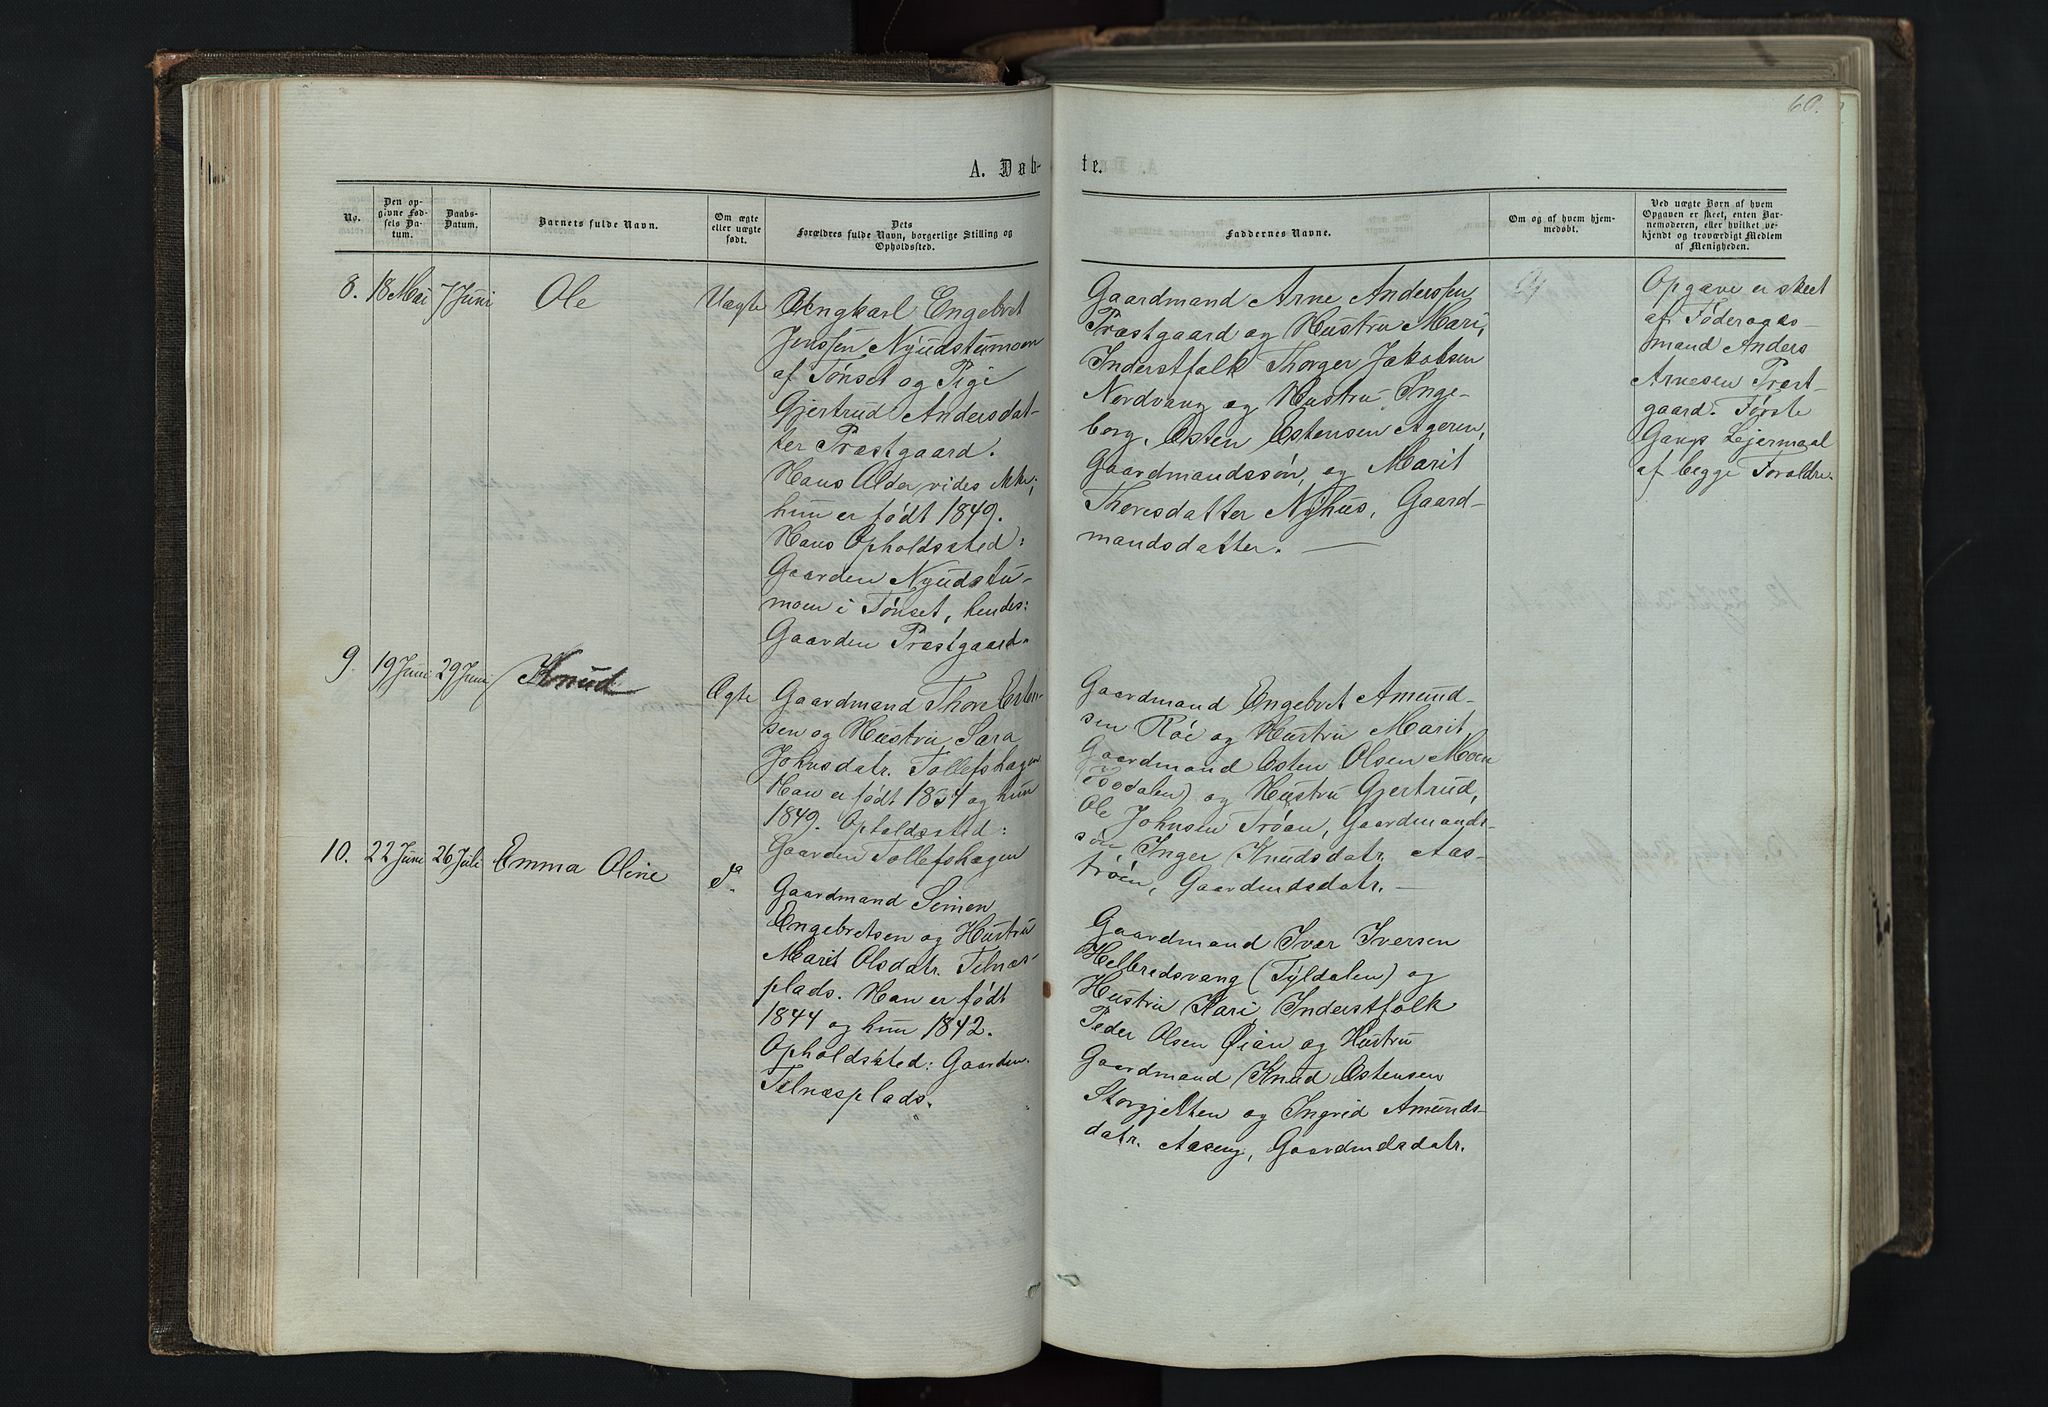 60.
A. Døb-
te.
No.
Den op-
givne Fød-
sels Da-
tum.
Daabs-
Datum.
Barnets fulde Navn.
Om ægte
eller uægte
født.
Dets
Forældres fulde Navn, borgerlige Stilling og
Opholdssted.
Faddernes Navne.
Om og af hvem hjem-
medøbt.
Ved uægte Børn af hvem
Opgaven er skeet, enten Bar-
nemoderen, eller hvilket ve-
kjendt og troværdigt Medlem
af Menigheden.
8. 18 Mai 7 Juni Ole Uægte
Ungkarl Engebret
Jenssen Nyudstumoen
af Tønset og Pige
Gjertrud Andersdat-
ter Præstgaard.
Hans Alder vides ikke;
hun er født 1849.
Hans Opholdssted:
Gaarden Nyudstu-
moen i Tønset, hendes:
Gaarden Præstgaard.
Gaardmand Arne Anderssen
Præstgaard og Hustru Mari,
Inderstfolk Thorger Jakobsen
Nordvang og Hustru Inge-
borg, Esten Estensen Ageren,
Gaardmandssøn, og Marit
Thoresdatter Nyhus, Gaard-
mandsdatter.
Opgave er skeet
af Føderaads-
mand Anders
Arnesen Præst-
gaard. Første
Gangs Lejermaal
af begge Forældre.
9. 19 Juni 29 Juni Knud Ægte
Gaardmand Thore Esten-
sen og Hustru Sara
Johnsdatr. Tollefshagen
Han er født 1834 og hun
1849. Opholdssted:
Gaarden Tollefshagen
Gaardmand Engebret Amund-
sen Røe og Hustru Marit,
Gaardmand Esten Olsen Moen
og Hustru Gjertrud,
Ole Johnsen Trøan, Gaardmands-
søn Inger Knudsdatr. Aas-
trøen, Gaardmdsdatr. —
10. 22 Juni 26 Juli Emma Oline do
Gaardmand Simen
Engebretsen og Hustru
Marit Olsdatr. Telnæs-
plads. Han er født
1844 og hun 1842.
Opholdssted: Gaarden
Telnæsplads.
Gaardmand Ivar Iversen
Helbredsvang (Tyldalen) og
Hustru Kari, Inderstfolk
Peder Olsen Øian og Hustru
Gaardmand Knud Estensen
Storgjelten og Ingrid Amunds-
datr. Aaseng, Gaardmdsdatr.